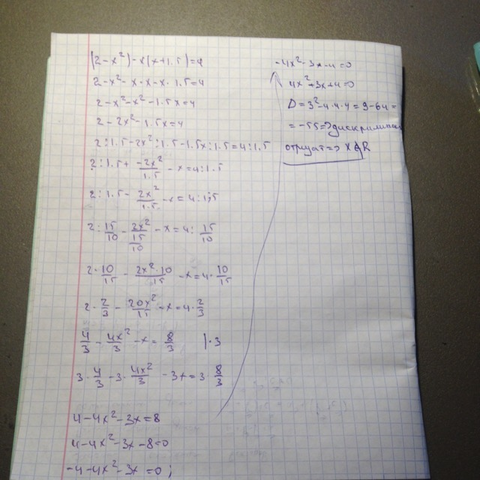 (2-x²)-x(x+1.5)=4
2-x²-x·x-x·1.5=4
2-x²-x²-1.5x=4
2-2x²-1.5x=4
2:1.5-2x²:1.5-1.5x:1.5=4:1.5
2:1.5+\frac{-2x²}{1.5}-x=4:1.5
2:1.5-\frac{2x²}{1.5}-x=4:1,5
2:\frac{15}{10}-\frac{2x²}{\frac{15}{10}}-x=4:\frac{15}{10}
2·\frac{10}{15}-\frac{2x²·10}{15}-x=4·\frac{10}{15}
2·\frac{2}{3}-\frac{20x²}{15}-x=4·\frac{2}{3}
\frac{4}{3}-\frac{4x²}{3}-x=\frac{8}{3} |·3
3·\frac{4}{3}-3·\frac{4x²}{3}-3x=3·\frac{8}{3}
4-4x²-3x=8
4-4x²-3x-8=0
-4-4x²-3x=0;
-4x²-3x-4=0
4x²+3x+4=0
D=3²-4·4·4=9-64=
=-55=>дискримин
отрицат=> x∉R